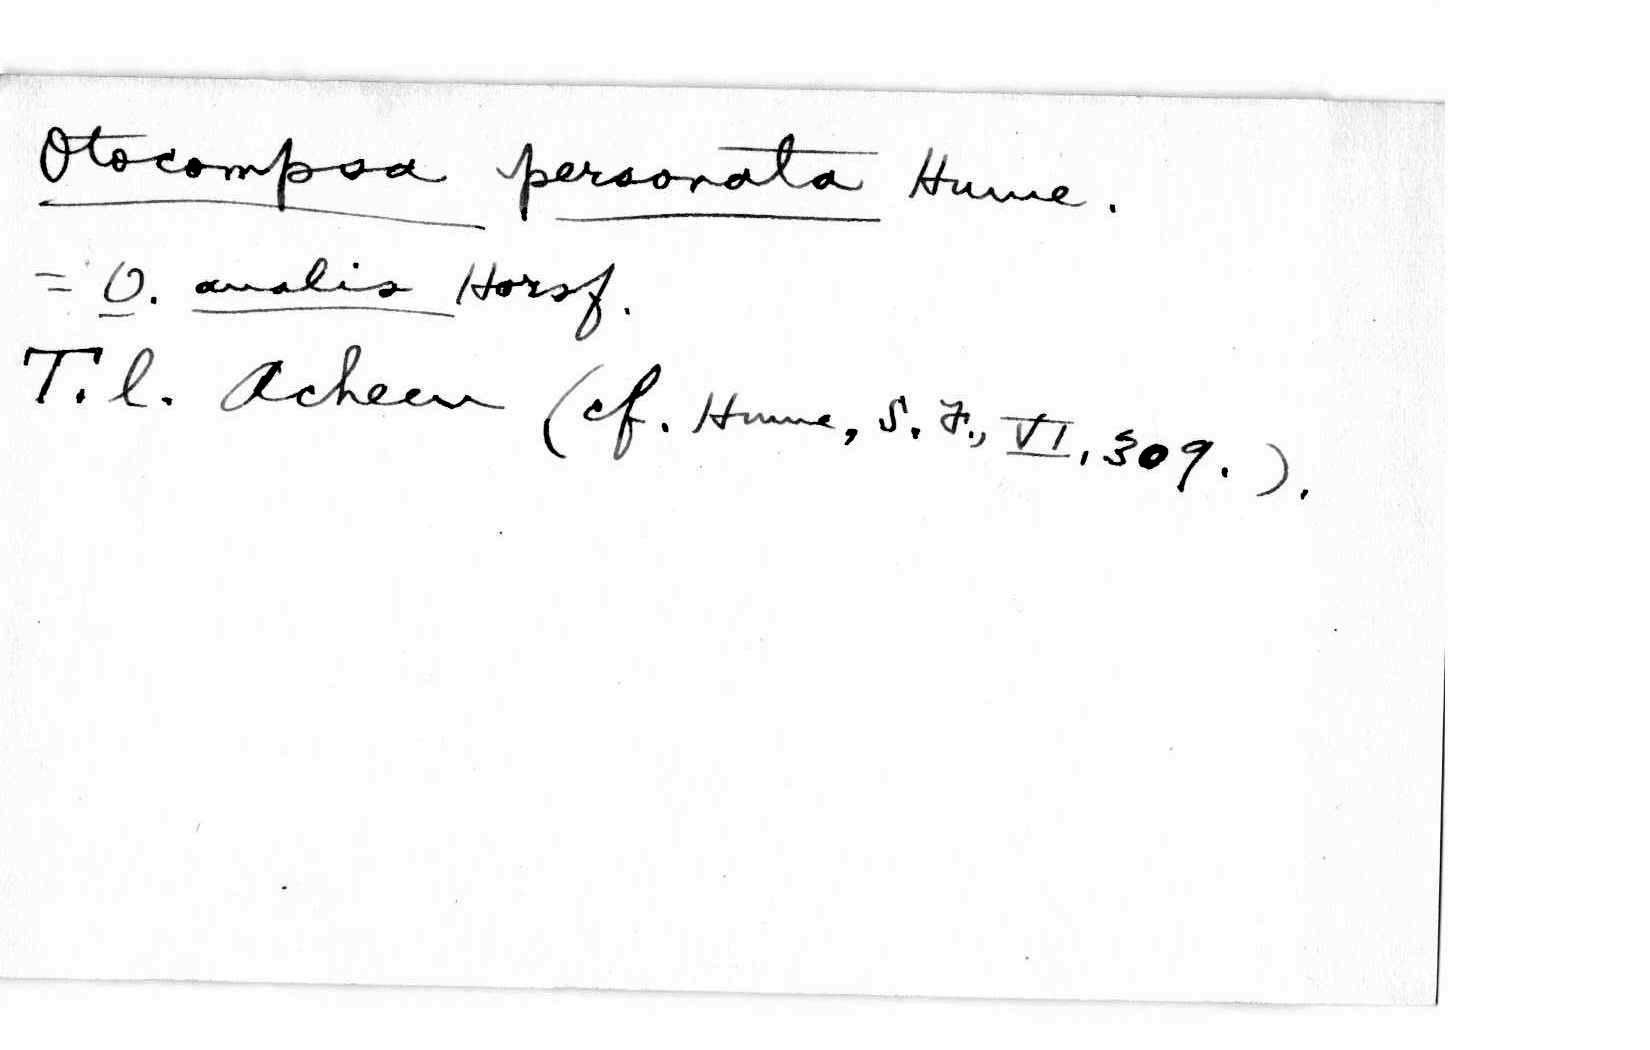 Otocompsa personata Hume.
= O. analis Horsf.
T. l. Acheen (cf. Hume, S. F., VI, 309.).